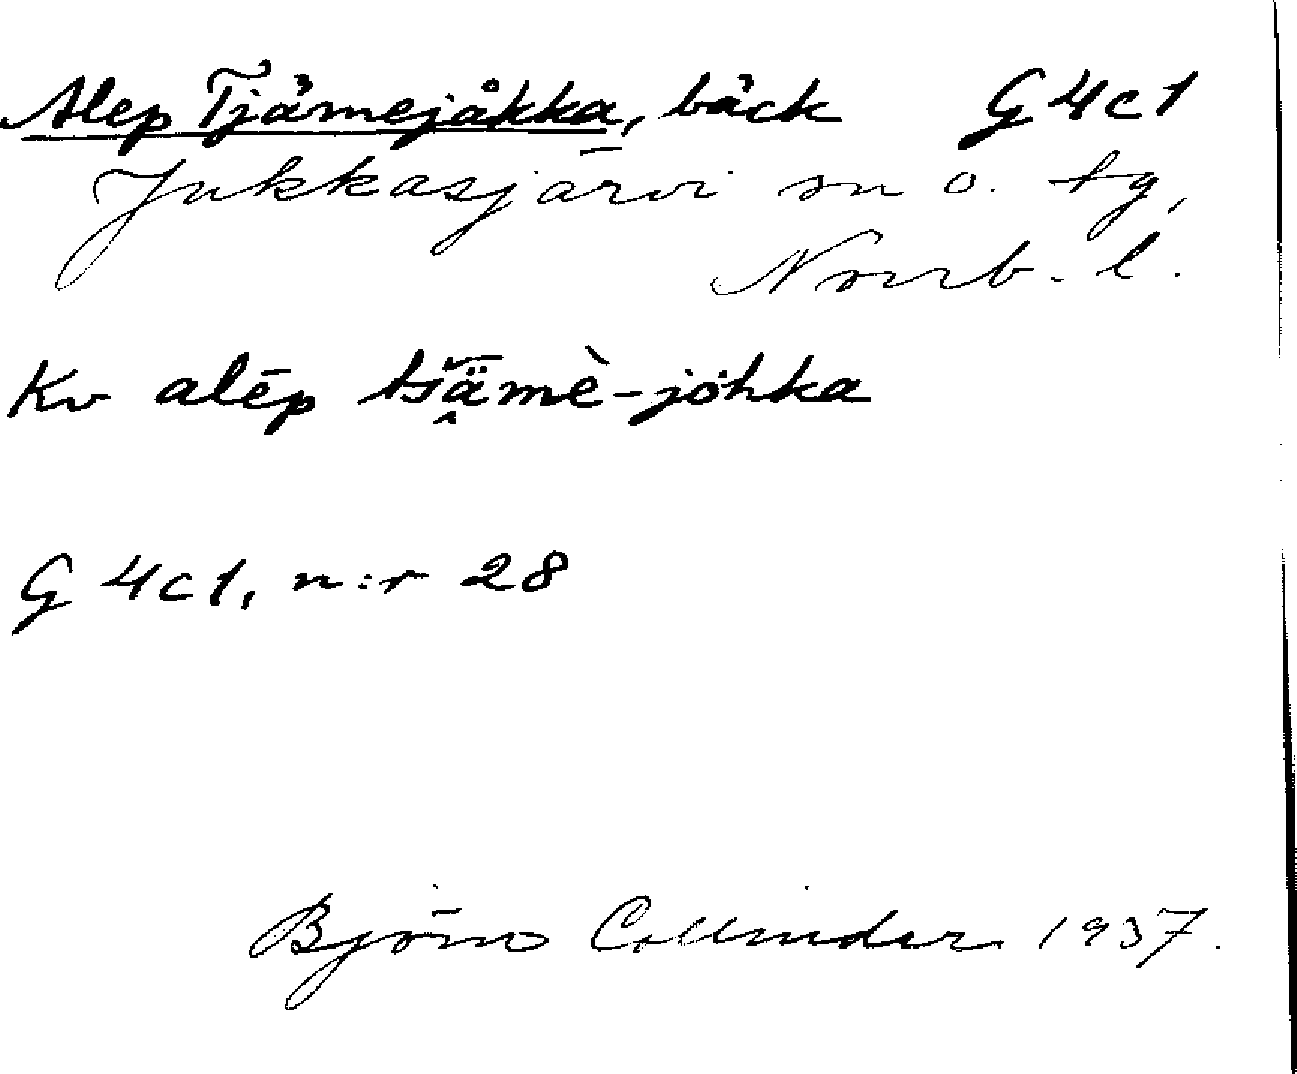 Alep Tjåmejåkka, bäck G4c1
Jukkasjärvi sn o. tg,
Norrb. l.
Kv alēp tšä̬mè-johka
G 4c1, n:r 28
Björn Collinder 1937.